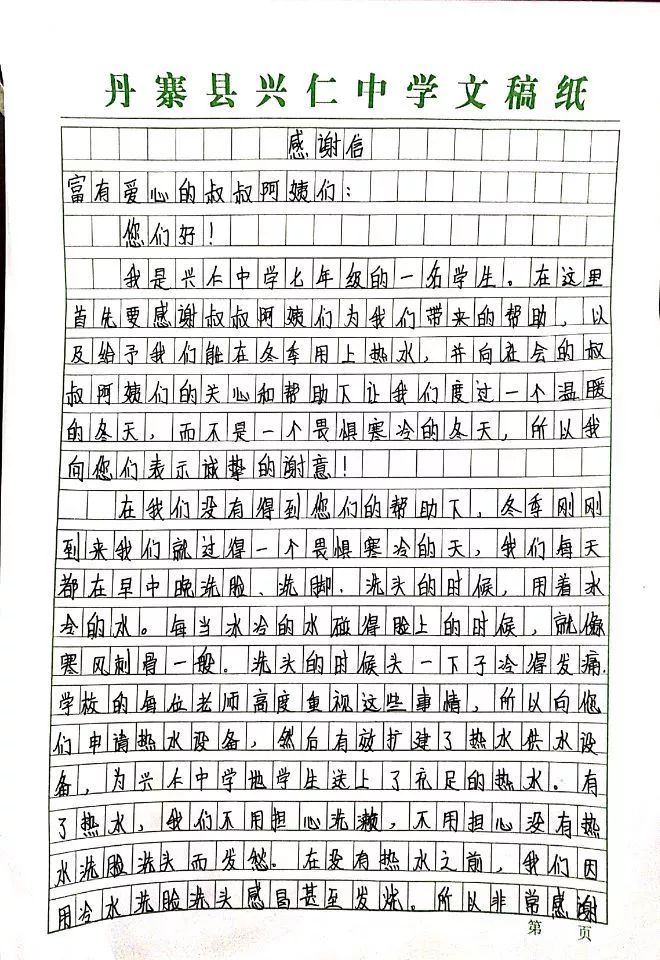 丹寨县兴仁中学文稿纸
感谢信
富有爱心的叔叔阿姨们：
您们好！
我是兴仁中学七年级的一名学生。在这里
首先要感谢叔叔阿姨们为我们带来的帮助，以
及给予我们能在冬季用上热水，并向社会的叔
叔阿姨们的关心和帮助下让我们度过一个温暖
的冬天，而不是一个畏惧寒冷的冬天，所以我
向您们表示诚挚的谢意！
在我们没有得到您们的帮助下，冬季刚刚
到来我们就过得一个畏惧寒冷的天，我们每天
都在早中晚洗脸、洗脚、洗头的时候，用着冰
冷的水。每当冰冷的水碰得脸上的时候，就像
寒风刺骨一般。洗头的时候头一下子冷得发痛.
学校的每位老师高度重视这些事情，所以向您
们申请热水设备，然后有效扩建了热水供水设
备，为兴仁中学地学生送上了充足的热水。有
了热水，我们不用担心洗漱，不用担心没有热
水洗脸洗头而发愁。在没有热水之前，我们因
用冷水洗脸洗头感冒甚至发烧。所以非常感谢
第 页